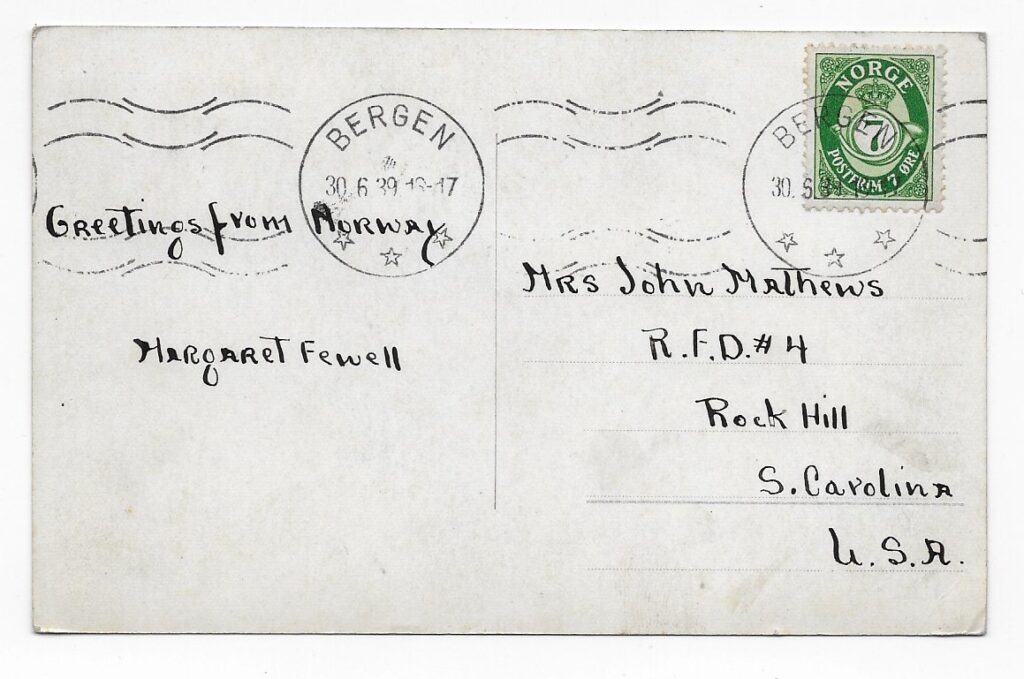 BERGEN
30.6.39 16-17
Greetings from Norway
Margaret Fewell
NORGE
7
POSTFRIM. 7 ØRE
BERGEN
30.6.39
Mrs John Mathews
R.F.D. # 4
Rock Hill
S. Carolina
U.S.A.